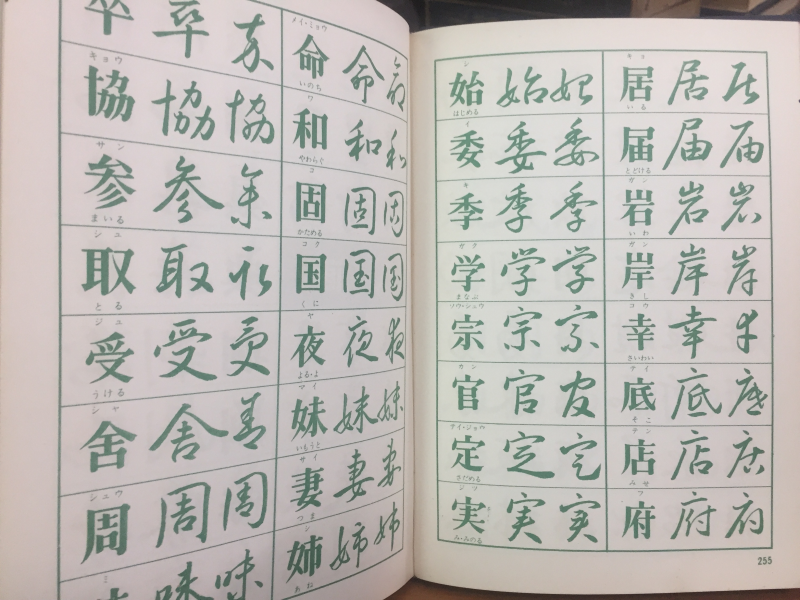 卒 卒 卒
キョウ
協 協 協
サン
参 参 参
まいる
シュ
取 取 取
とる
ジュ
受 受 受
うける
シャ
舎 舎 舎
シュウ
周 周 周
ミ
味 味
メイ・ミョウ
命 命 命
いのち
ワ
和 和 和
やわらぐ
コ
固 固 固
かためる
コク
国 国 国
くに
ヤ
夜 夜 夜
よる・よ
マイ
妹 妹 妹
いもうと
サイ
妻 妻 妻
つま
シ
姉 姉 姉
あね
シ
始 始 始
はじめる
イ
委 委 委
キ
季 季 季
ガク
学 学 学
まなぶ
ソウ・シュウ
宗 宗 宗
カン
官 官 官
テイ・ジョウ
定 定 定
さだめる
ジツ
実 実 実
み・みのる
キョ
居 居 居
いる
届 届 届
とどける
ガン
岩 岩 岩
いわ
ガン
岸 岸 岸
きし
コウ
幸 幸 幸
さいわい
テイ
底 底 底
そこ
テン
店 店 店
みせ
フ
府 府 府
255